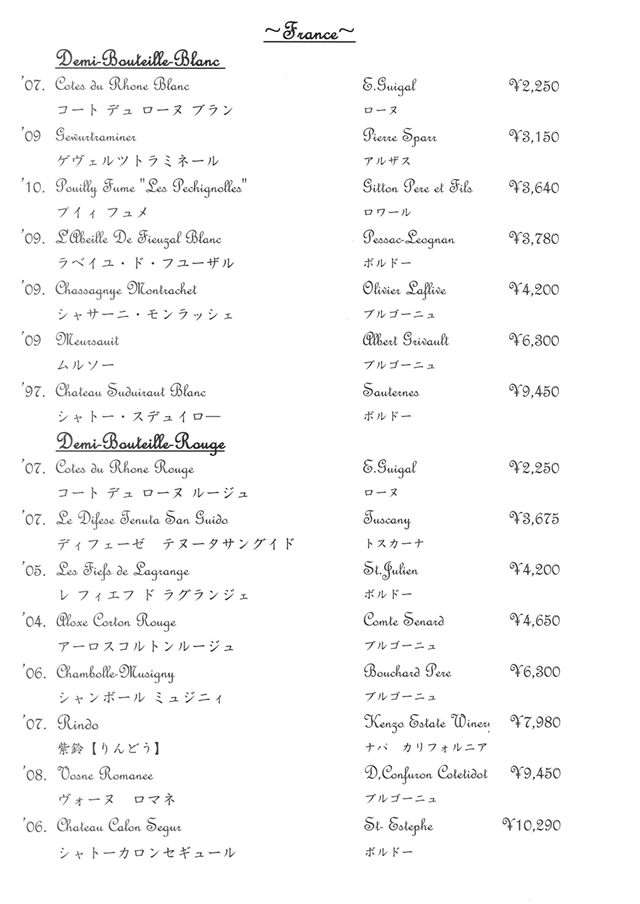 ~France~
Demi-Bouteille-Blanc
'07. Cotes du Rhone Blanc E.Guigal ¥2,250
コート デュ ローヌ ブラン ローヌ
'09 Gewurtraminer Pierre Sparr ¥3,150
ゲヴェルツトラミネール アルザス
'10. Pouilly Fume "Les Pechignolles" Gitton Pere et Fils ¥3,640
プイィ フュメ ロワール
'09. L'Abeille De Fieuzal Blanc Pessac-Leognan ¥3,780
ラベイユ・ド・フユーザル ボルドー
'09. Chassagnye Montrachet Olivier Laflive ¥4,200
シャサーニ・モンラッシェ ブルゴーニュ
'09 Meursauit Albert Grivault ¥6,300
ムルソー ブルゴーニュ
'97. Chateau Suduiraut Blanc Sauternes ¥9,450
シャトー・スデュイロ― ボルドー
Demi-Bouteille-Rouge
'07. Cotes du Rhone Rouge E.Guigal ¥2,250
コート デュ ローヌ ルージュ ローヌ
'07. Le Difese Tenuta San Guido Tuscany ¥3,675
ディフェーゼ テヌータサングイド トスカーナ
'05. Les Fiefs de Lagrange St.Julien ¥4,200
レ フィエフ ド ラグランジェ ボルドー
'04. Aloxe Corton Rouge Comte Senard ¥4,650
アーロスコルトンルージュ ブルゴーニュ
'06. Chambolle-Musigny Bouchard Pere ¥6,300
シャンボール ミュジニィ ブルゴーニュ
'07. Rindo Kenzo Estate Winery ¥7,980
紫鈴【りんどう】 ナパ カリフォルニア
'08. Vosne Romanee D,Confuron Cotetidot ¥9,450
ヴォーヌ ロマネ ブルゴーニュ
'06. Chateau Calon Segur St- Estephe ¥10,290
シャトーカロンセギュール ボルドー